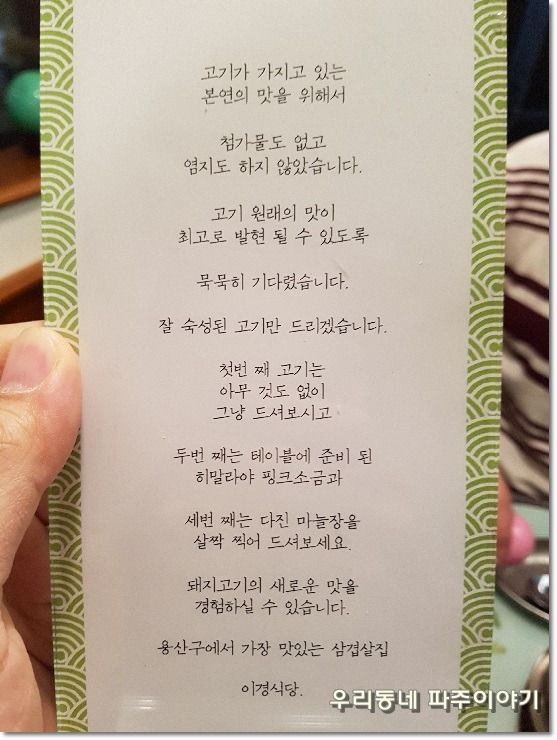 고기가 가지고 있는
본연의 맛을 위해서
첨가물도 없고
염지도 하지 않았습니다.
고기 원래의 맛이
최고로 발현 될 수 있도록
묵묵히 기다렸습니다.
잘 숙성된 고기만 드리겠습니다.
첫번 째 고기는
아무 것도 없이
그냥 드셔보시고
두번 째는 테이블에 준비 된
히말라야 핑크소금과
세번 째는 다진 마늘장을
살짝 찍어 드셔보세요.
돼지고기의 새로운 맛을
경험하실 수 있습니다.
용산구에서 가장 맛있는 삼겹살집
이경식당.
우리동네 파주이야기